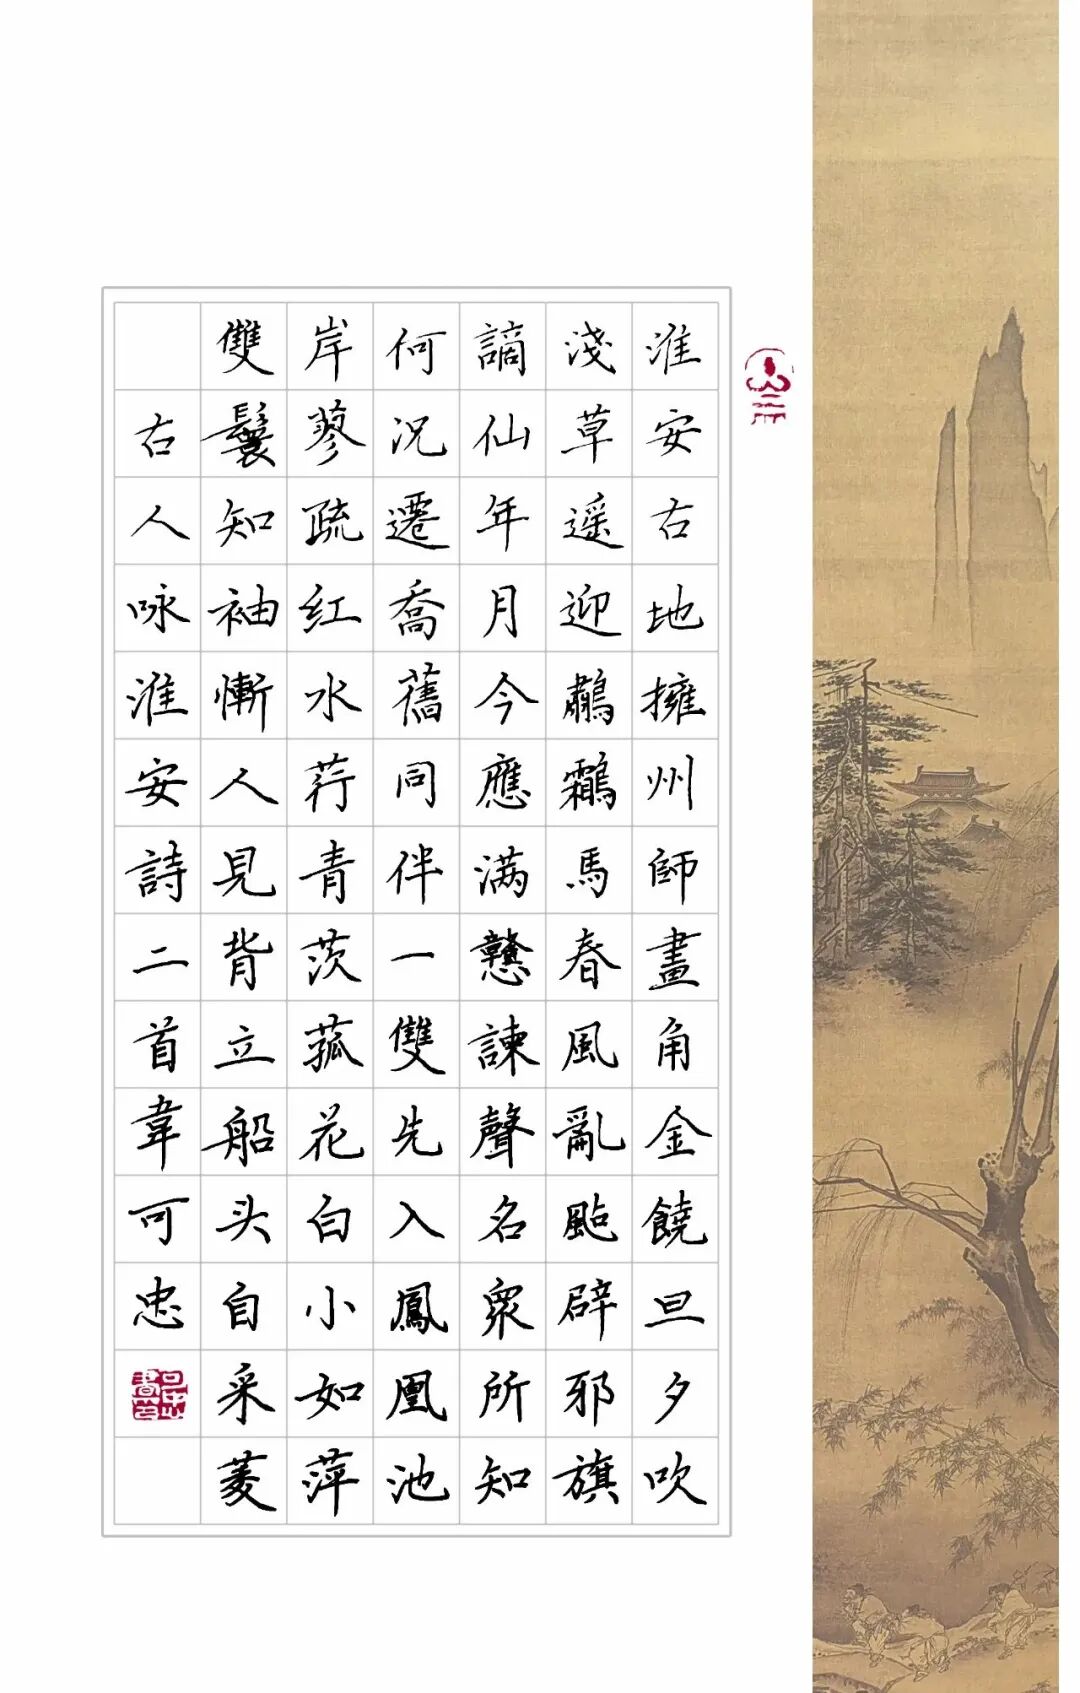 淮安古地擁州師畫角金饒旦夕吹
淺草遥迎鷫鸘馬春風亂颭辟邪旗
謫仙年月今應满戇諫聲名衆所知
何况遷喬舊同伴一雙先入鳳凰池
岸蓼疏红水荇青茨菰花白小如萍
雙鬟知袖慚人見背立船头自采菱
古人咏淮安詩二首韋可忠